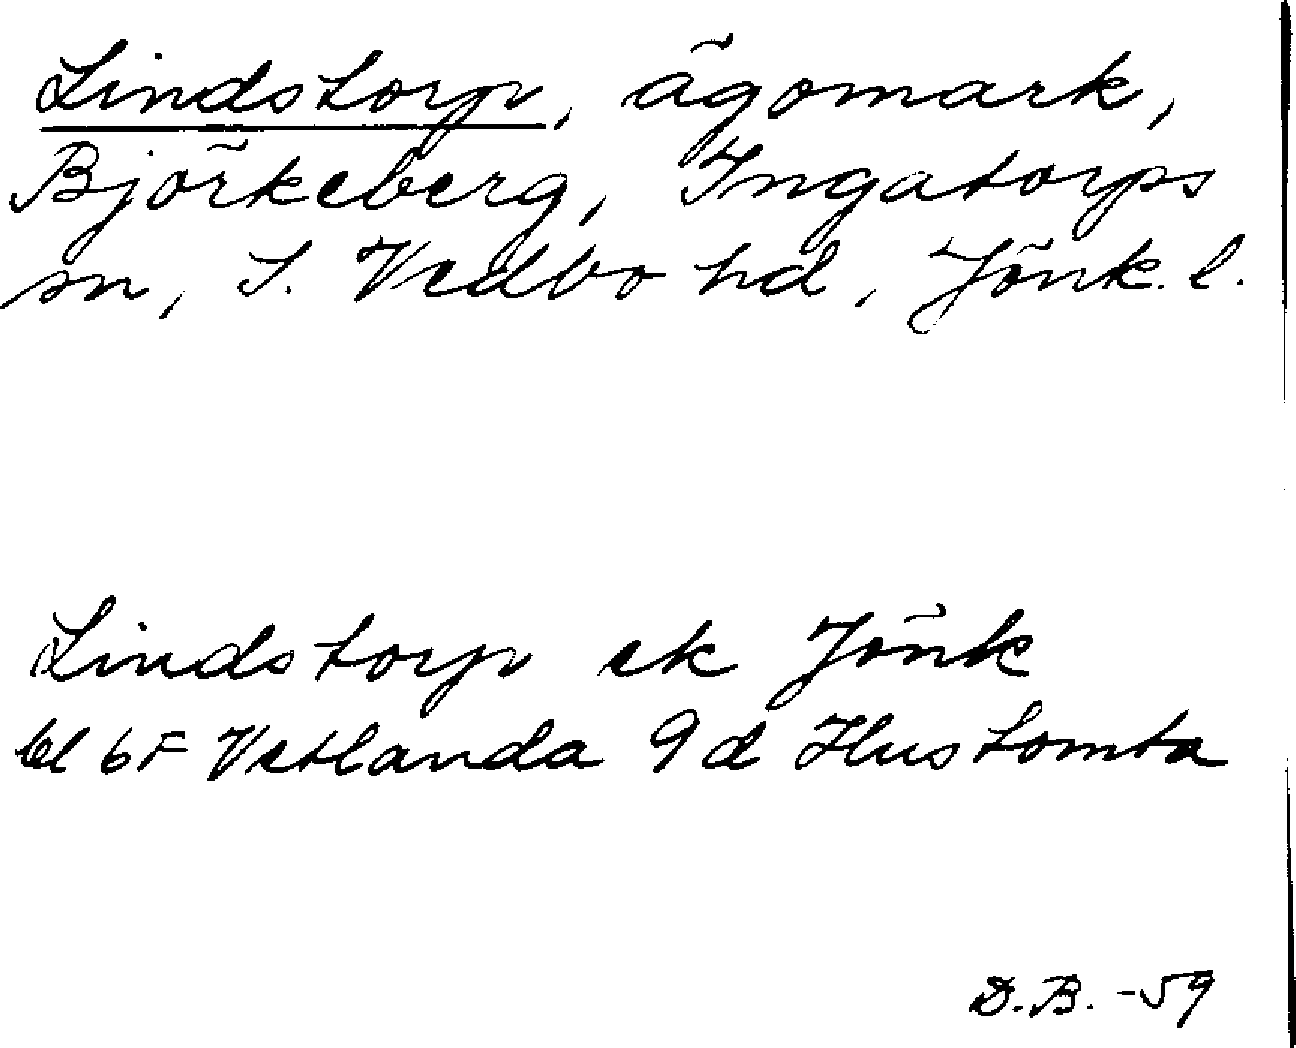 Lindstorp, ägomark,
Björkeberg, Ingatorps
sn, S. Vedbo hd, Jönk. l.
Lindstorp ek Jönk
bl 6F Vetlanda 9d Hustomta
D.B. -59